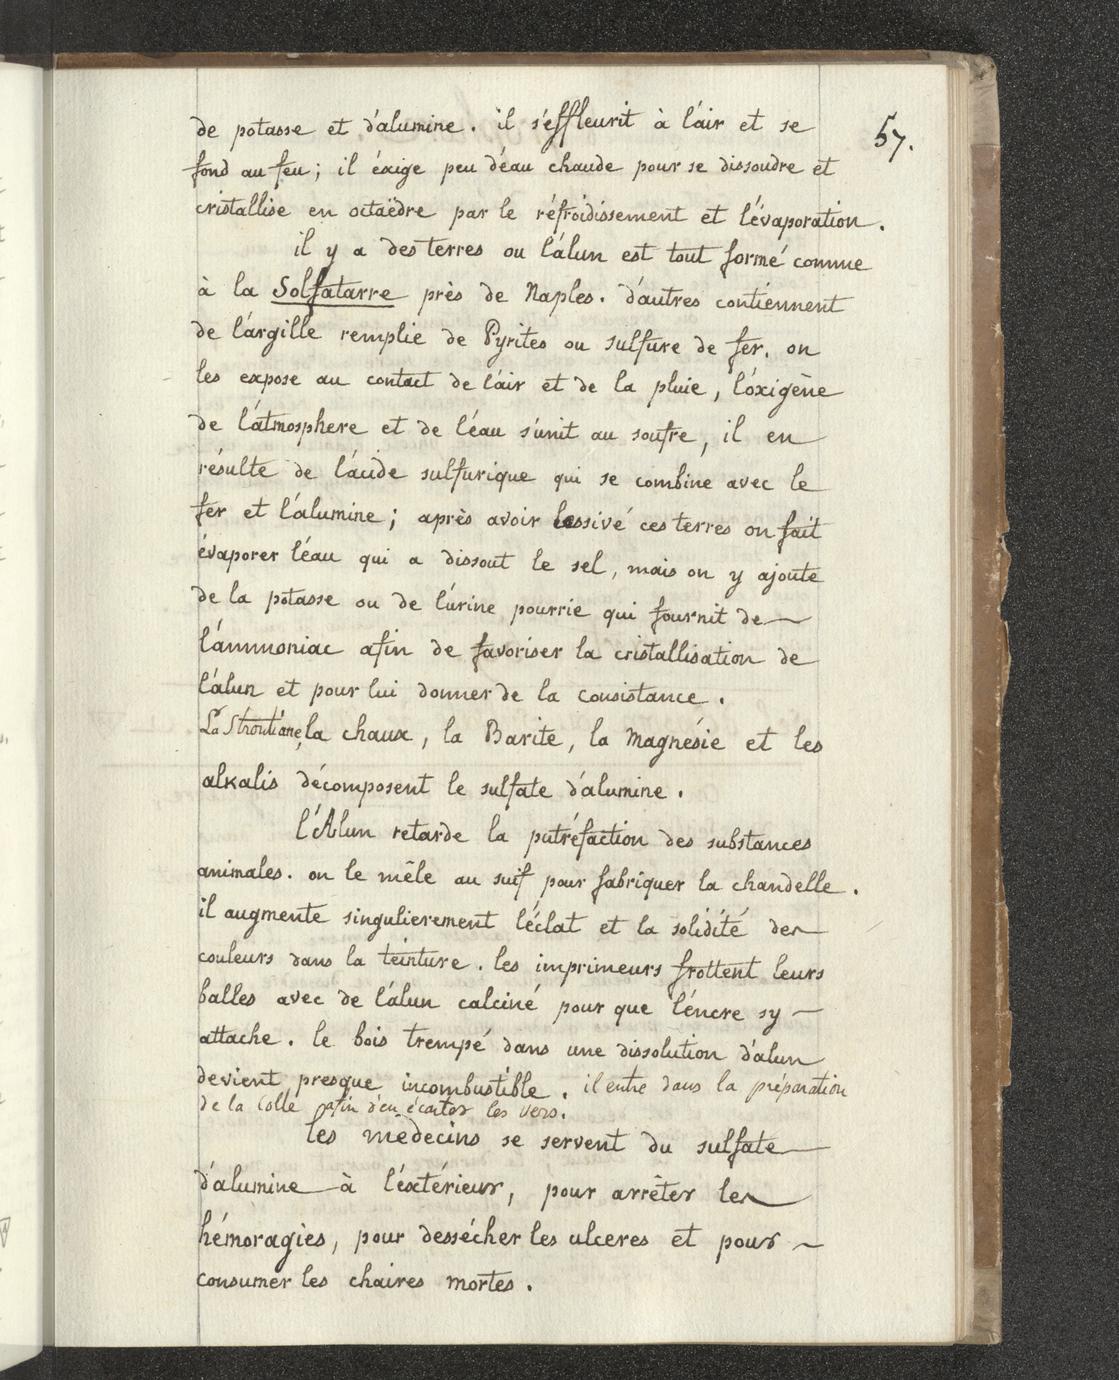 57.
de potasse et d'alumine. il s'éffleurit à l'air et se
fond au feu; il éxige peu d'éau chaude pour se dissoudre et
cristallise en octaëdre par le réfroidissement et l'évaporation.
il y a des terres ou l'álun est tout formé comme
à la Solfatarre près de Naples. d'autres contiennent
de l'árgille remplie de Pyrites ou sulfure de fer. on
les expose au contact de l'air et de la pluie, l'óxigène
de l'átmosphere et de l'éau s'unit au soufre, il en
résulte de l'ácide sulfurique qui se combine avec le
fer et l'álumine; après avoir lessivé ces terres on fait
évaporer l'éau qui a dissout le sel, mais on y ajoute
de la potasse ou de l'úrine pourrie qui fournit de
l'ámmoniac afin de favoriser la cristallisation de
l'álun et pour lui donner de la consistance.
La Strontiane, la chaux, la Barite, la Magnésie et les
alkalis décomposent le sulfate d'alumine.
l'Alun retarde la putréfaction des substances
animales. on le mêle au suif pour fabriquer la chandelle.
il augmente singulierement l'éclat et la solidité des
couleurs dans la teinture. les imprimeurs frottent leurs
balles avec de l'álun calciné pour que l'éncre s'y
attache. le bois trempé dans une dissolution d'alun
devient presque incombustible. il entre dans la préparation
de la Colle afin d'en écarter les vers.
les médecins se servent du sulfate
d'alumine à l'éxtérieur, pour arrêter les
hémoragies, pour dessécher les ulceres et pour
consumer les chaires mortes.